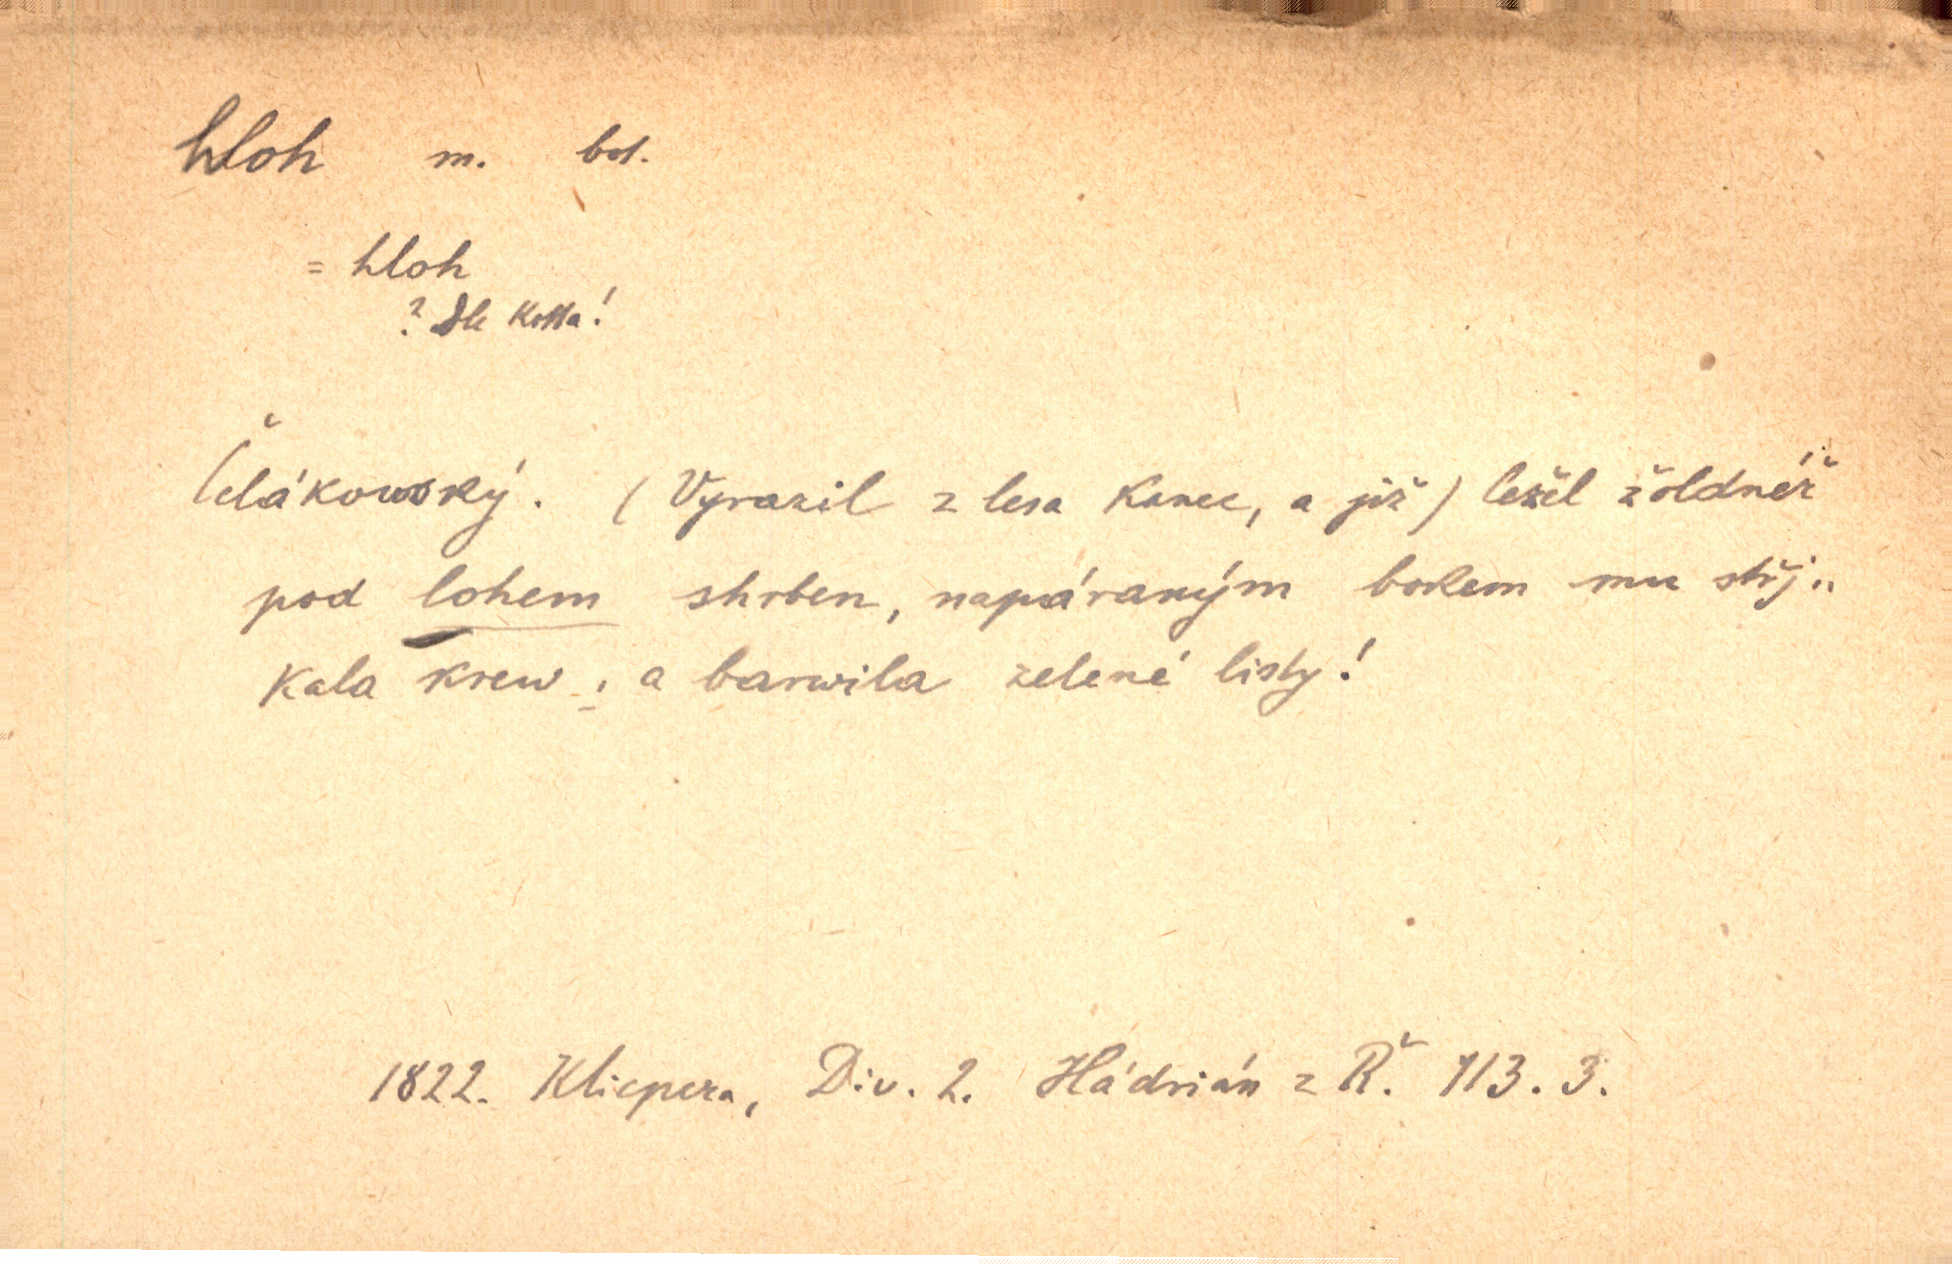 hloh m. bot.
= hloh
? Dle Kotta!
Čelákowský. (Vyrazil z lesa kanec, a již) ležel žoldnéř
pod lohem shrben, napáraným bokem mu střj„
kala krew ; a barwila zelené listy!
1822. Klicpera, Div. 2. Hádrián z Ř. 113. 3.